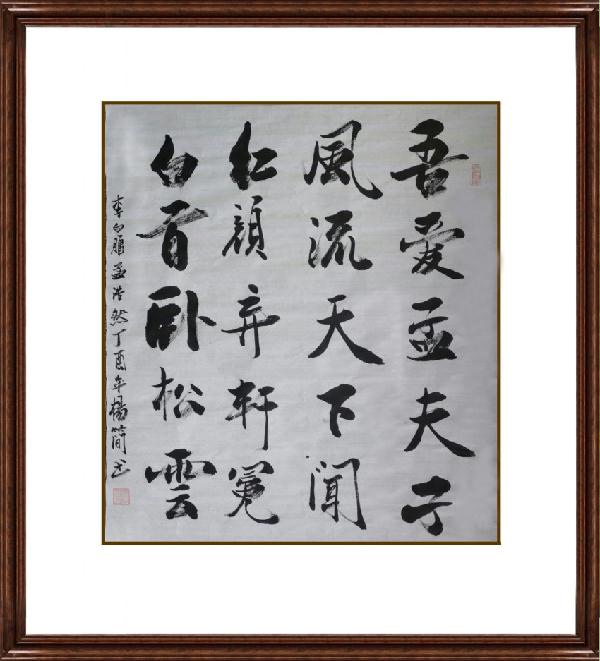 吾愛孟夫子
風流天下聞
紅顔弃軒冕
白首卧松雲
李白贈孟浩然丁酉年楊簡书